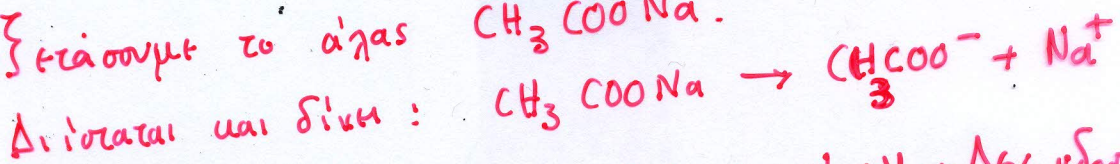 ξετάσουμε το άλας CH₃COONa.
Διίσταται και δίνει : CH₃COONa → CH₃COO⁻ + Na⁺